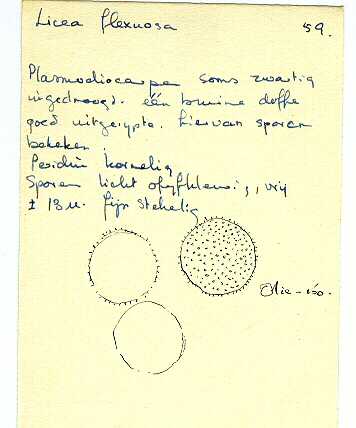 Licea flexuosa 59.
Plasmodiocarpen soms zwartig
ingedroogd. één bruine doffe
goed uitgerypte. hiervan sporen
bekeken.
Peridiu korrelig
Sporen licht olyfkleurig, vry
± 13 u. fijn stekelig
Olie-iso.